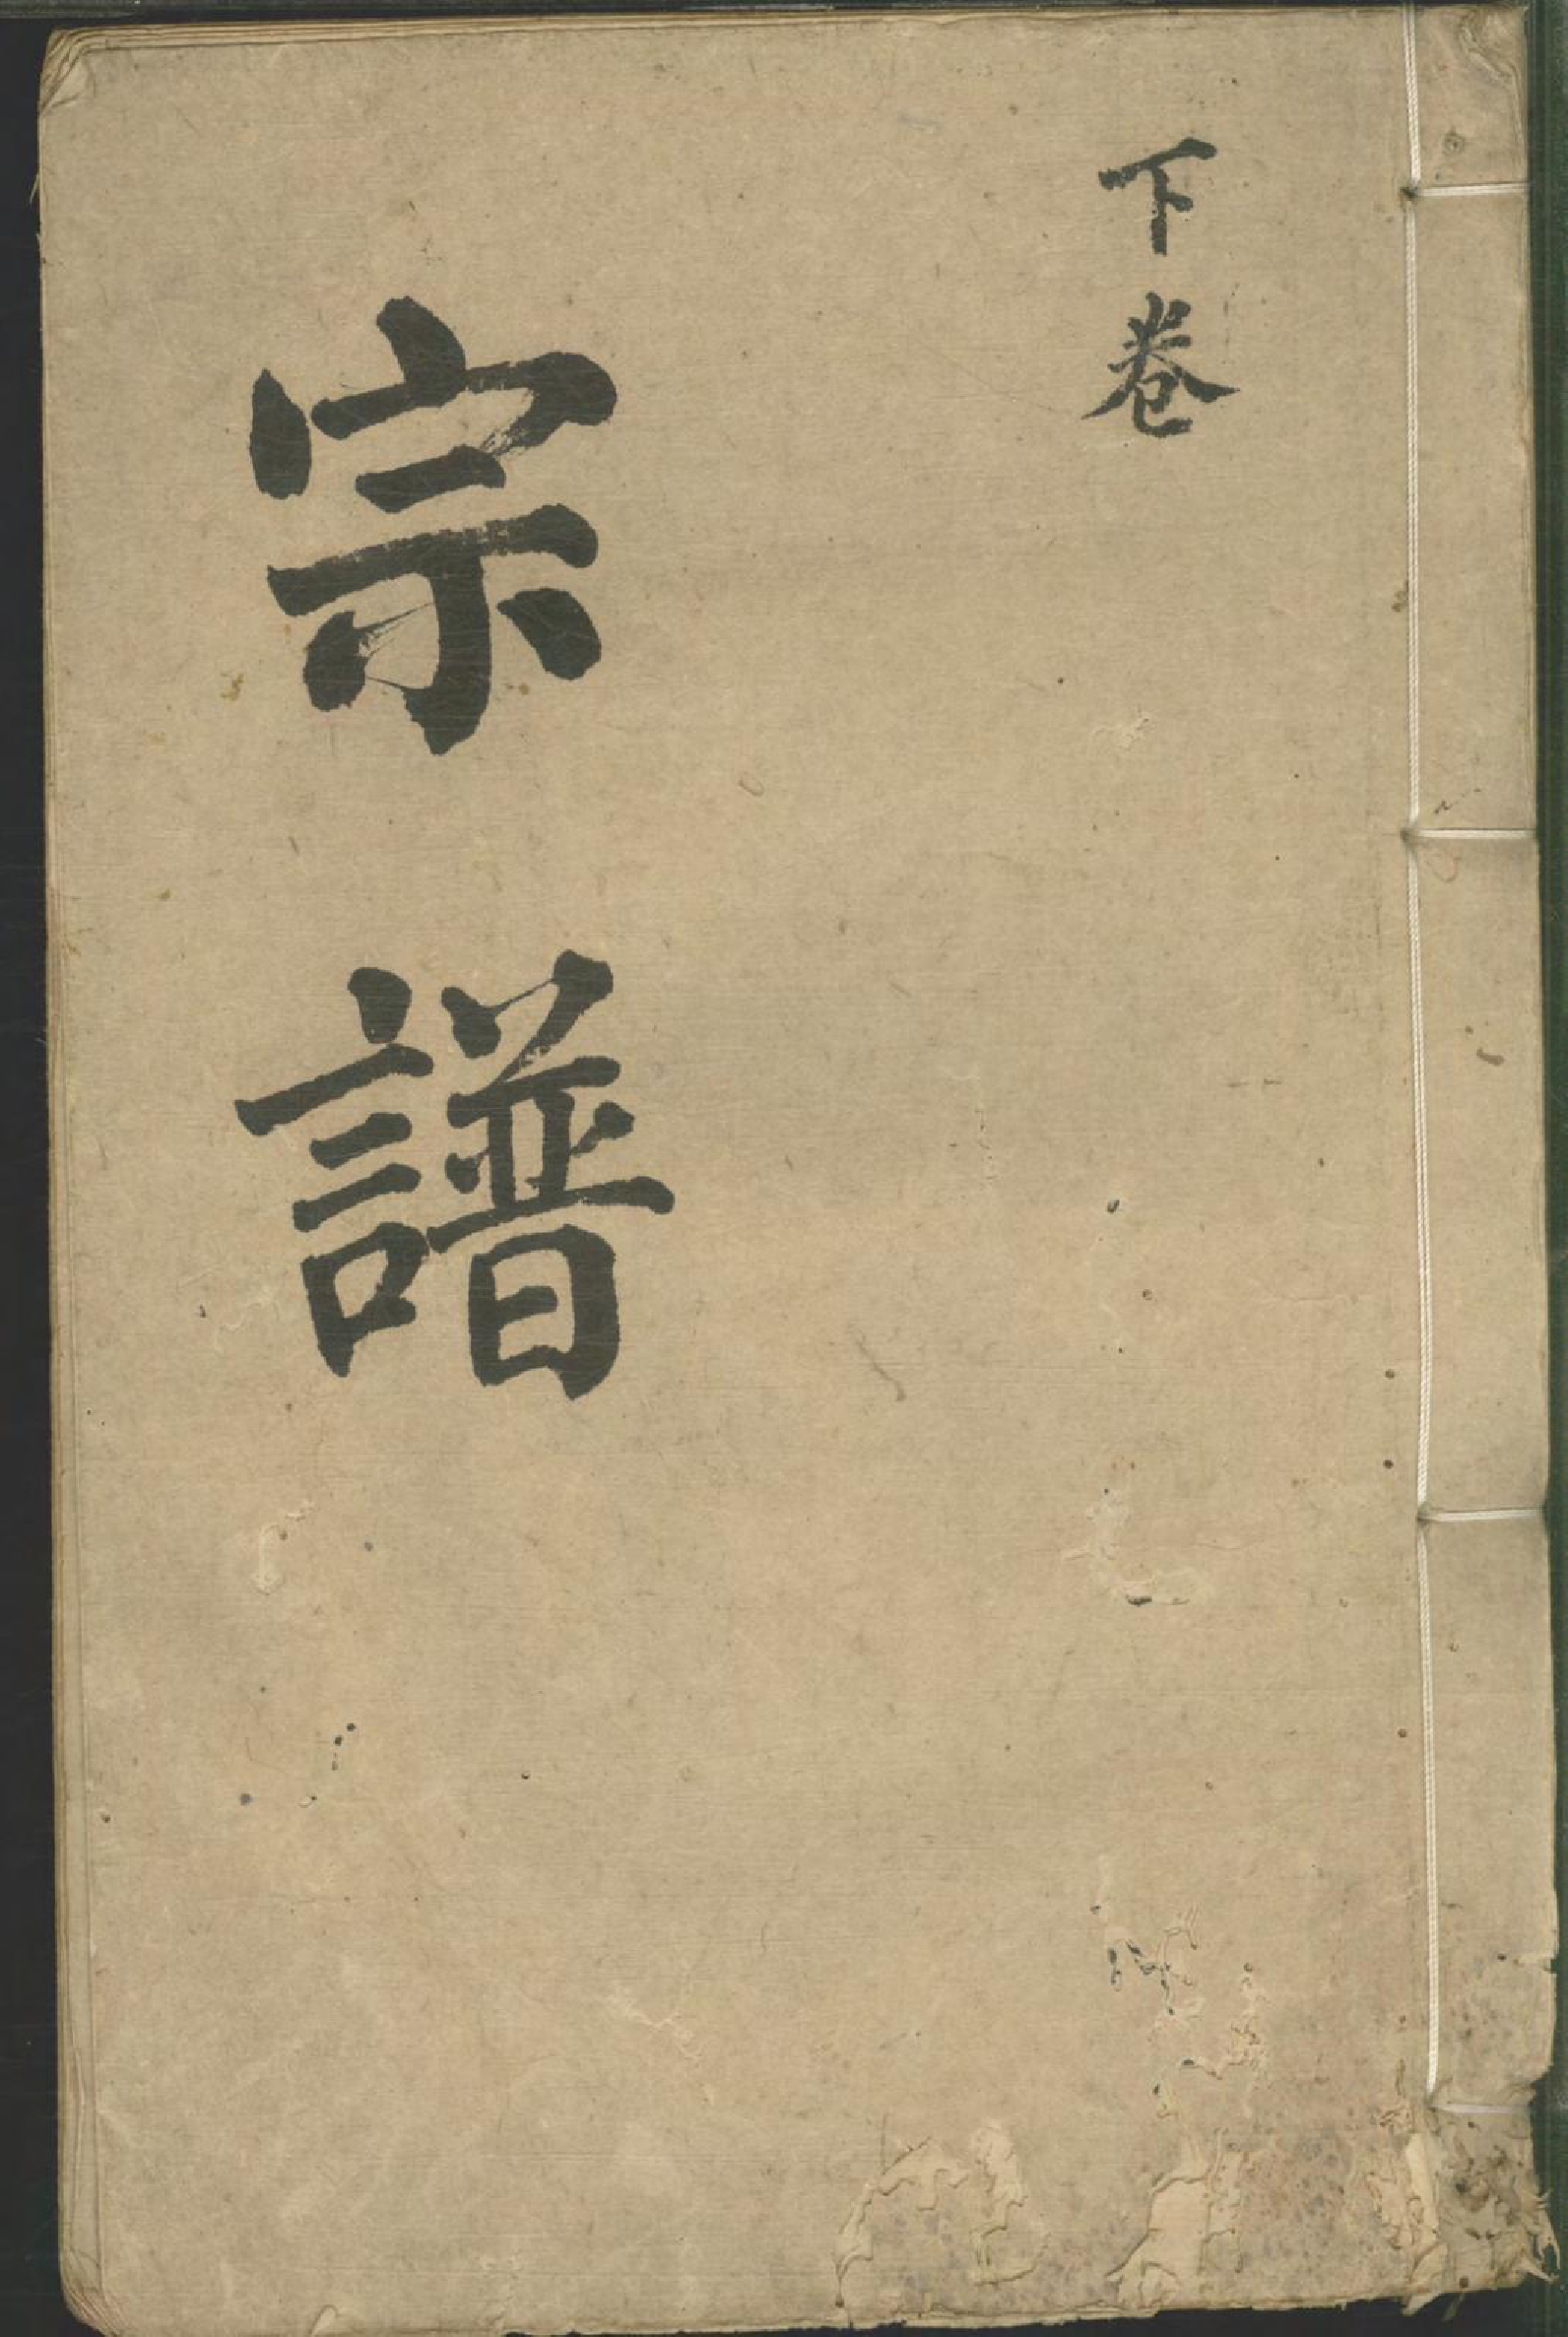 下卷
宗譜